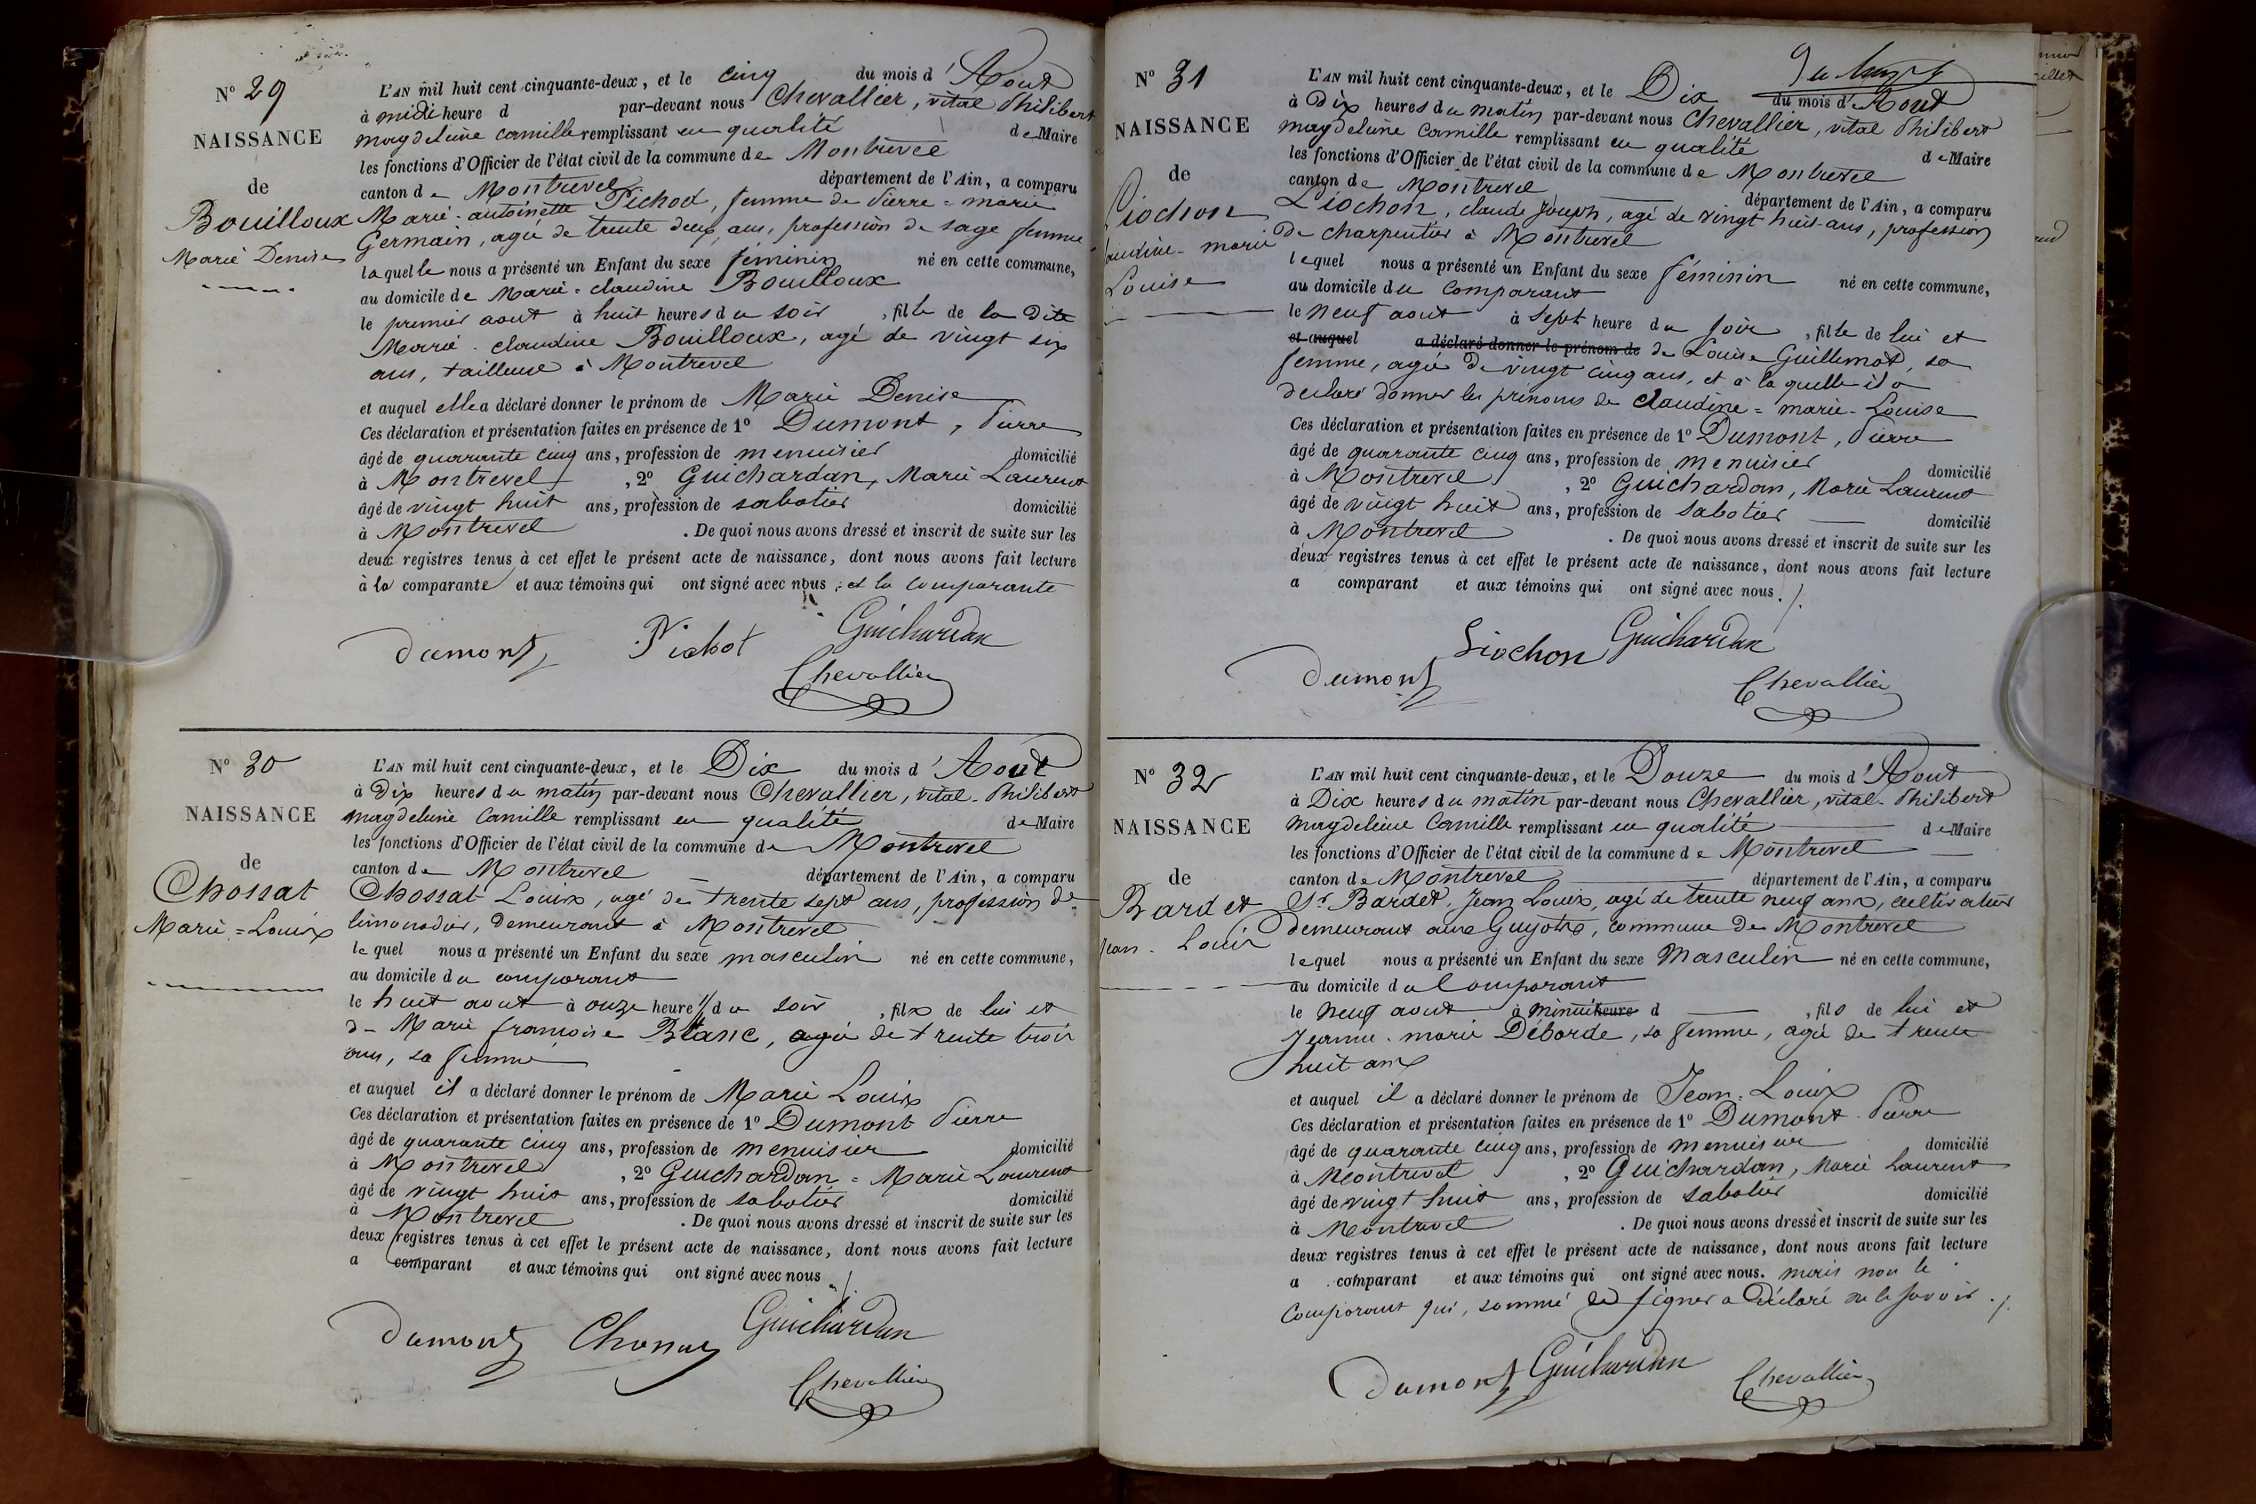 N° 29
NAISSANCE
de
Bouilloux
Marie Denise
L'AN mil huit cent cinquante-deux, et le cinq du mois d'Aout
à midi heure d par-devant nous Chevallier, vital Philibert
magdeleine Camille remplissant en qualité de Maire
les fonctions d'Officier de l'état civil de la commune de Montrevel
canton de Montrevel département de l'Ain, a comparu
Marie-antoinette Pichod, femme de Pierre-marie
Germain, agée de trente deux ans, profession de sage femme
laquelle nous a présenté un Enfant du sexe féminin né en cette commune,
au domicile de Marie-claudine Bouilloux
le premier aout à huit heures du soir, fille de la Dite
Marie-claudine Bouilloux, agé de vingt six
ans, tailleuse à Montrevel
et auquel elle a déclaré donner le prénom de Marie Denise
Ces déclaration et présentation faites en présence de 1° Dumont, Pierre
âgé de quarante cinq ans, profession de menuisier domicilié
à Montrevel, 2° Guichardan, Marie Laurent
âgé de vingt huit ans, profession de sabotier domicilié
à Montrevel. De quoi nous avons dressé et inscrit de suite sur les
deux registres tenus à cet effet le présent acte de naissance, dont nous avons fait lecture
à la comparante et aux témoins qui ont signé avec nous, et la comparante
Dumont Pichot Guichardan
Chevallier
N° 30
NAISSANCE
de
Chossat
Marie=Louis
L'AN mil huit cent cinquante-deux, et le Dix du mois d'Aout
à Dix heures du matin par-devant nous Chevallier, vital-Philibert
magdeleine Camille remplissant en qualité de Maire
les fonctions d'Officier de l'état civil de la commune de Montrevel
canton de Montrevel département de l'Ain, a comparu
Chossat Louis, agé de trente sept ans, profession de
limonadier, demeurant à Montrevel
lequel nous a présenté un Enfant du sexe masculin né en cette commune,
au domicile du comparant
le huit aout à onze heure du soir, fils de lui et
de Marie françoise Blanc, agée de trente trois
ans, sa femme
et auquel il a déclaré donner le prénom de Marie Louis
Ces déclaration et présentation faites en présence de 1° Dumont Pierre
âgé de quarante cinq ans, profession de menuisier domicilié
à Montrevel, 2° Guichardan = Marie Laurent
âgé de vingt huit ans, profession de sabotier domicilié
à Montrevel. De quoi nous avons dressé et inscrit de suite sur les
deux registres tenus à cet effet le présent acte de naissance, dont nous avons fait lecture
a comparant et aux témoins qui ont signé avec nous
Dumont Chossat Guichardan
Chevallier
N° 31
NAISSANCE
de
Liochon
audine-marie
Louise
L'AN mil huit cent cinquante-deux, et le Dix du mois d'Aout
à Dix heures du matin par-devant nous Chevallier, vital Philibert
magdeleine Camille remplissant en qualité de Maire
les fonctions d'Officier de l'état civil de la commune de Montrevel
canton de Montrevel département de l'Ain, a comparu
Liochon, claude Joseph, agé de vingt huit ans, profession
de charpentier à Montrevel
lequel nous a présenté un Enfant du sexe féminin né en cette commune,
au domicile du comparant
le neuf aout à sept heure du soir, fille de lui et
et auquel a déclaré donner le prénom de de Louise Guillemot, sa
femme, agée de vingt cinq ans, et à la quelle il a
déclaré donner les prénoms de claudine=marie-Louise
Ces déclaration et présentation faites en présence de 1° Dumont, Pierre
âgé de quarante cinq ans, profession de menuisier domicilié
à Montrevel, 2° Guichardan, Marie Laurent
âgé de vingt huit ans, profession de sabotier domicilié
à Montrevel. De quoi nous avons dressé et inscrit de suite sur les
deux registres tenus à cet effet le présent acte de naissance, dont nous avons fait lecture
a comparant et aux témoins qui ont signé avec nous.
Liochon Guichardan
Dumont Chevallier
N° 32
NAISSANCE
de
Bardet
Jean-Louis
L'AN mil huit cent cinquante-deux, et le Douze du mois d'Aout
à Dix heures du matin par-devant nous Chevallier, vital-Philibert
magdeleine Camille remplissant en qualité de Maire
les fonctions d'Officier de l'état civil de la commune de Montrevel
canton de Montrevel département de l'Ain, a comparu
Sr Bardet, Jean Louis, agé de trente neuf ans, cultivateur
demeurant aux Guyots, commune de Montrevel
lequel nous a présenté un Enfant du sexe Masculin né en cette commune,
au domicile du Comparant
le neuf aout à minuit heure d, fils de lui et
Jeanne-marie Déborde, sa femme, agée de trente
huit ans
et auquel il a déclaré donner le prénom de Jean-Louis
Ces déclaration et présentation faites en présence de 1° Dumont Pierre
âgé de quarante cinq ans, profession de menuisier domicilié
à Montrevel, 2° Guichardan, Marie Laurent
âgé de vingt huit ans, profession de sabotier domicilié
à Montrevel. De quoi nous avons dressé et inscrit de suite sur les
deux registres tenus à cet effet le présent acte de naissance, dont nous avons fait lecture
a comparant et aux témoins qui ont signé avec nous. mais non le
Comparant qui, sommé de signer a Déclaré ne le savoir.
Dumont Guichardan Chevallier